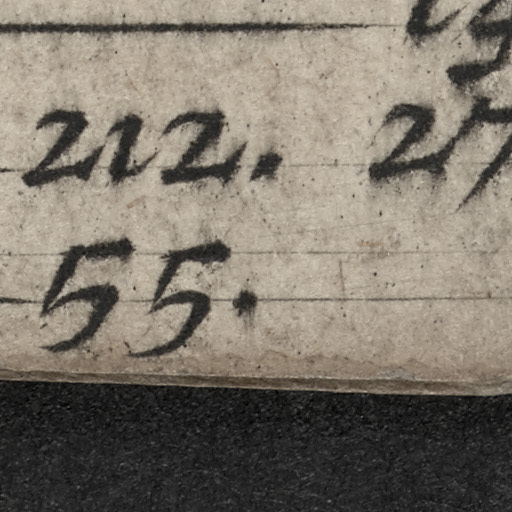 212. 27
55.